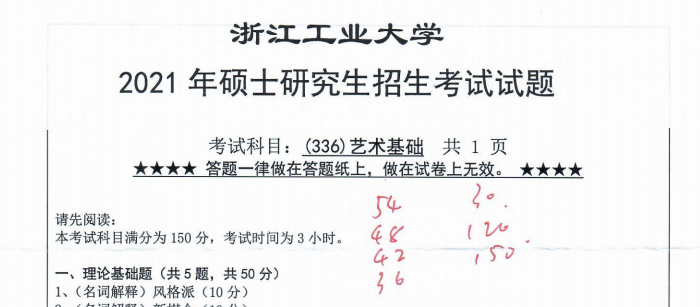 浙江工业大学
2021 年硕士研究生招生考试试题
考试科目：(336)艺术基础 共 1 页
★★★★ 答题一律做在答题纸上，做在试卷上无效。 ★★★★
54 30.
请先阅读：
48 120
本考试科目满分为 150 分，考试时间为 3 小时。
42 150.
一、理论基础题（共 5 题，共 50 分）
36
1、（名词解释）风格派（10 分）